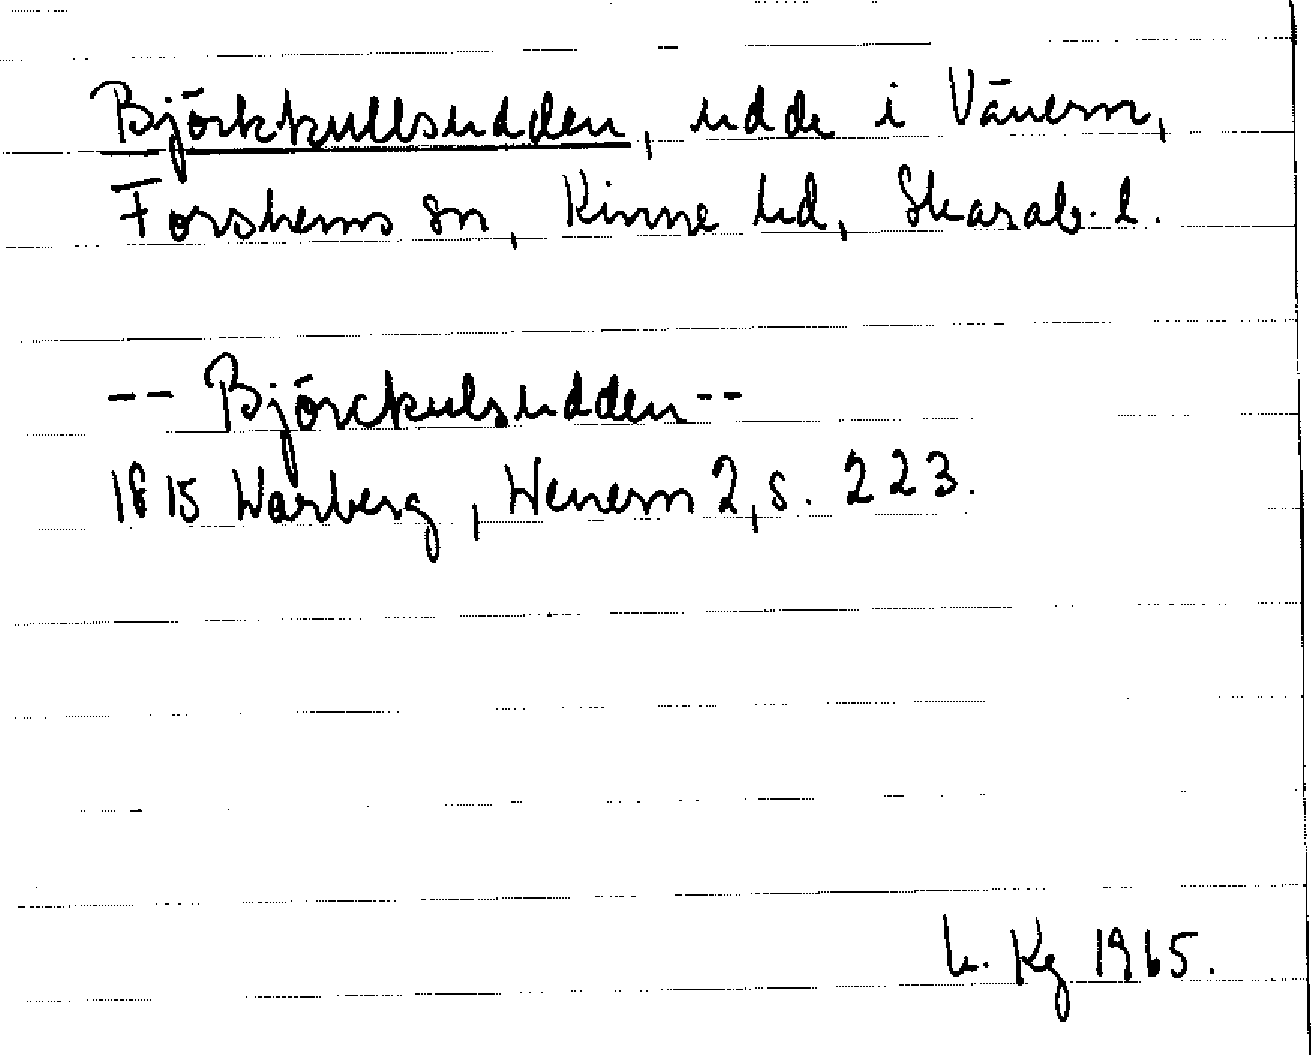 Björkkullsudden, udde i Vänern,
Forshems sn, Kinne hd, Skarab. l.
-- Björckulsudden --
1815 Warberg, Wenern 2, s. 223.
h. Kg 1965.